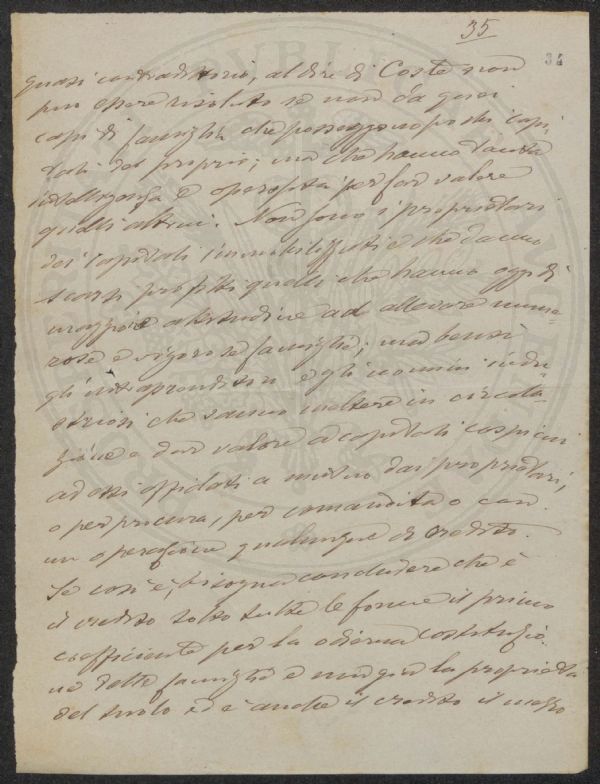 35
34
quasi contradittorio, al dire di Coste non
può essere risoluto se non da quei
capi di famiglia che posseggono pochi capi-
tali del proprio; ma che hanno tanta
intelligenza e operosità per far valore
quelli altrui. Non sono i proprietari
dei capitali immobilizzati e che danno
scarsi profitti quelli che hanno oggidì
maggiore attitudine ad allevare nume-
rose e vigorose famiglie; ma bensì
gl'intraprenditori e gli uomini indu-
striosi che sanno mettere in circola-
zione e dar valore a capitali cospicui
ad essi affidati a mutuo dai proprietari,
o per procura, per comandita o con
un operazione qualunque di credito.
Se così è, bisogna concludere che è
il credito sotto tutte le forme il primo
coefficiente per la odierna costituzio-
ne delle famiglie e non già la proprietà
del suolo ed è anche il credito il mezzo